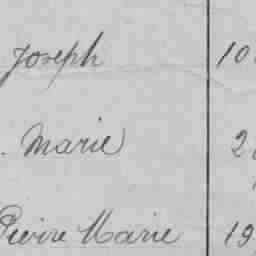 Joseph 10
. Marie 2
Pierre Marie 19